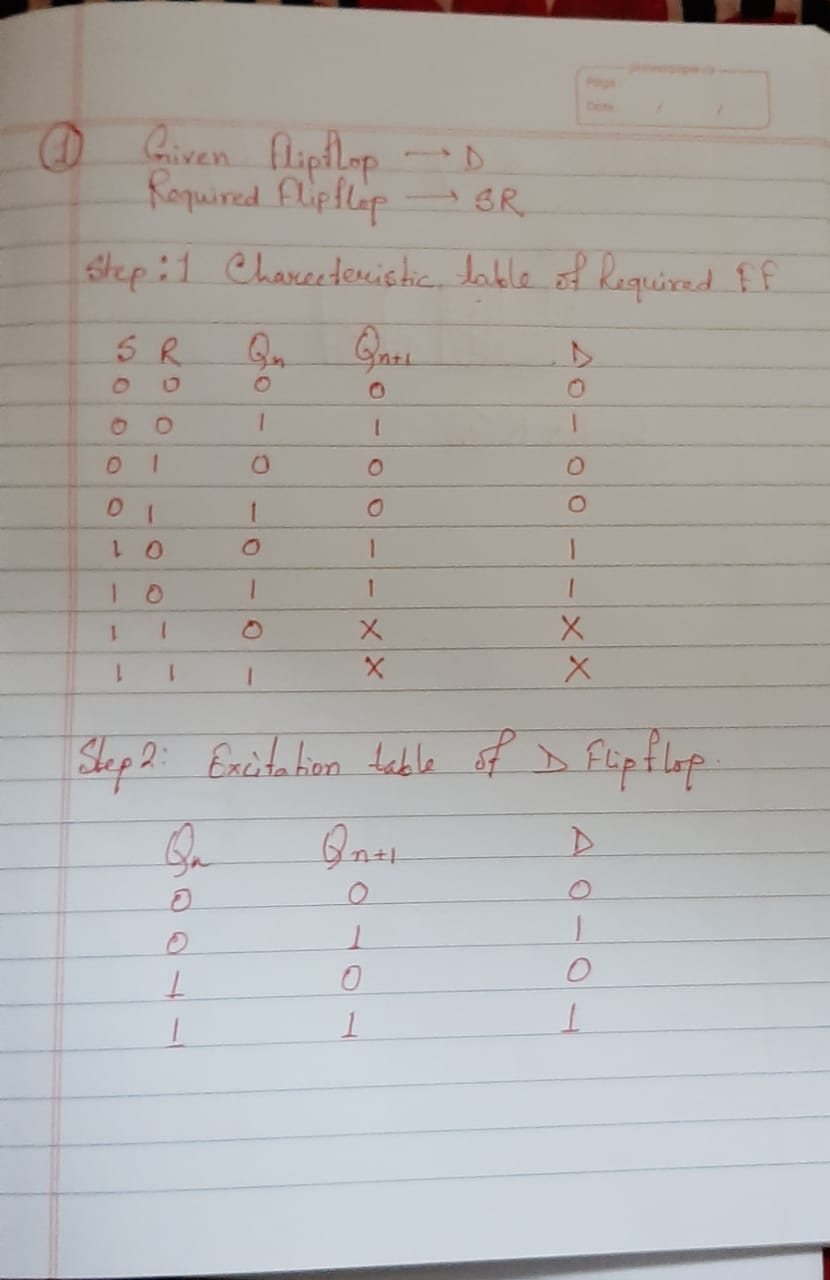 Page
Date / /
① Given flipflop → D
Required flipflop → SR
Step:1 Charecteristic table of Required FF
S R Qn Qn+1 D
0 0 0 0 0
0 0 1 1 1
0 1 0 0 0
0 1 1 0 0
1 0 0 1 1
1 0 1 1 1
1 1 0 X X
1 1 1 X X
Step 2: Excitation table of D Flipflop.
Qn Qn+1 D
0 0 0
0 1 1
1 0 0
1 1 1